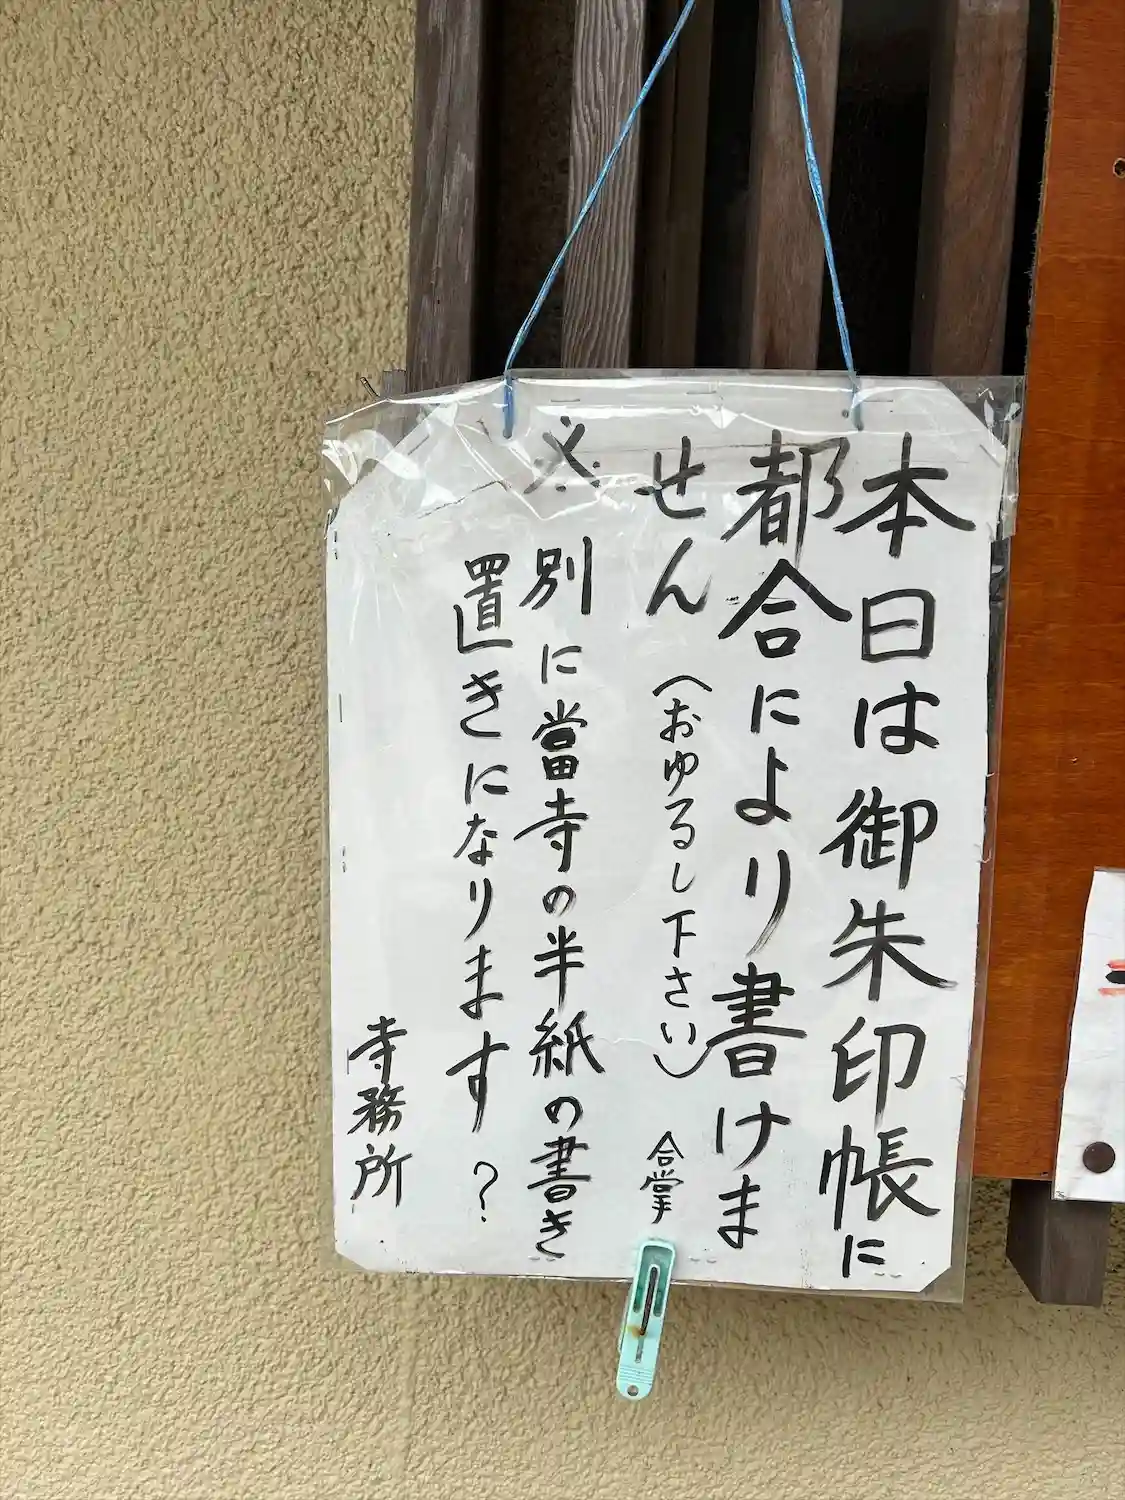 本日は御朱印帳に
都合により書けま
せん（おゆるし下さい）合掌
※別に當寺の半紙の書き
置きになります？
寺務所